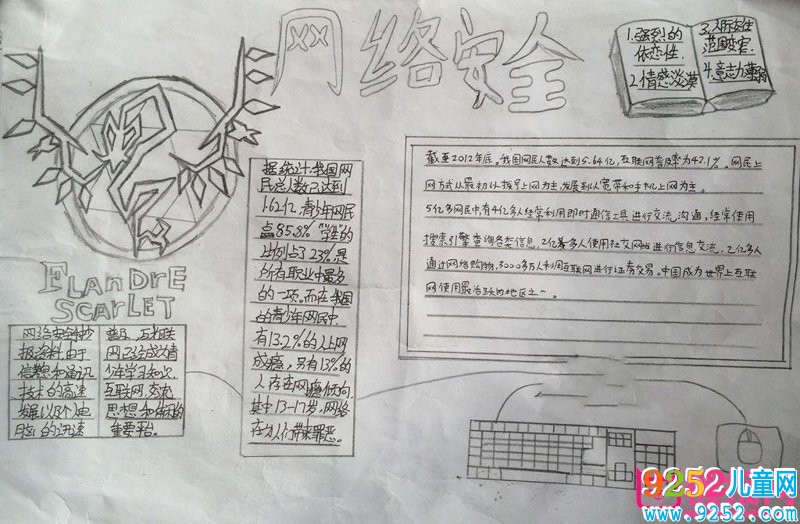 网络安全
1.强烈的
依恋性.
2.情感淡漠
3.人际交往
范围变窄.
4.意志力薄弱
FLANDRE
SCARLET
网络安全手抄
报资料.由于
信息和通讯
技术的高速
发展以及个人电
脑的迅速
普及,互联
网已经成为青
少年学习知识
互联网,交流
思想
重要平台。
据统计,我国网
民总人数已达到
1.62亿,青少年网民
占85.8%"学生"的
比例占了23%,是
所有职业中最多
的一项.而在我国
的青少年网民中,
有13.2%的人上网
成瘾,另有13%的
人存在网瘾倾向.
其中13-17岁,网络
在为人行带来罪恶。
截至2012年底,我国网民人数达到5.64亿,互联网普及率为42.1%。网民上
网方式从最初以拨号上网为主,发展到以宽带和手机上网为主。
5亿多网民中,有4亿多人经常利用即时通信工具进行交流,沟通,经常使用
搜索引擎查询各类信息,2亿多人使用社交网站进行信息交流,2亿多人
通过网络购物,3000多万人利用互联网进行证券交易。中国成为世界上互联
网使用最活跃的地区之一。
9252儿童网
www.9252.com